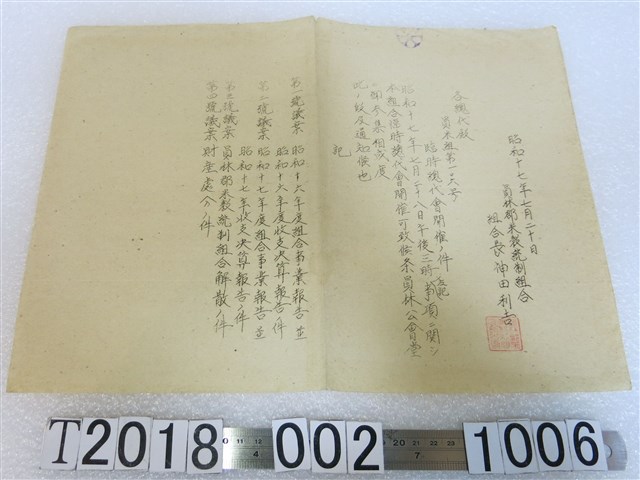 昭和十七年七月二十日
員林郡米穀統制組合
組合長 神田利吉
各總代殿
員米組第一六号
臨時總代會開催ノ件
昭和十七年七月二十八日午後三時左記事項ニ関シ
本組合臨時總代會開催可致候条員林公會堂
ニ御参集相成度
此ノ段及通知候也
記
第一號議案 昭和十六年度組合事業報告並
昭和十六年度收支決算報告ノ件
第二號議案 昭和十七年度組合事業報告並
昭和十七年度收支決算報告ノ件
第三號議案 員林郡米穀統制組合解散ノ件
第四號議案 財産處分ノ件
T2018 002 1006